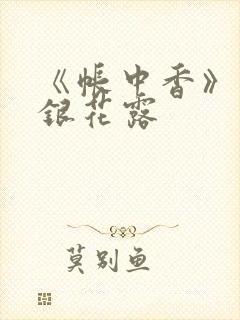 《帐中香》
银花露
莫别鱼